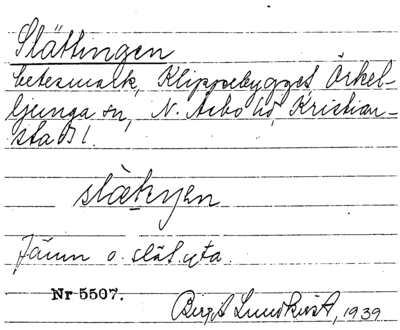 Slättingen
betesmark, Klippebygget Örkel-
ljunga sn, N. Åsbo hd, Kristian-
stads l.
Jämn o. slät yta.
Nr 5507.
Bergit Lundkvist, 1939